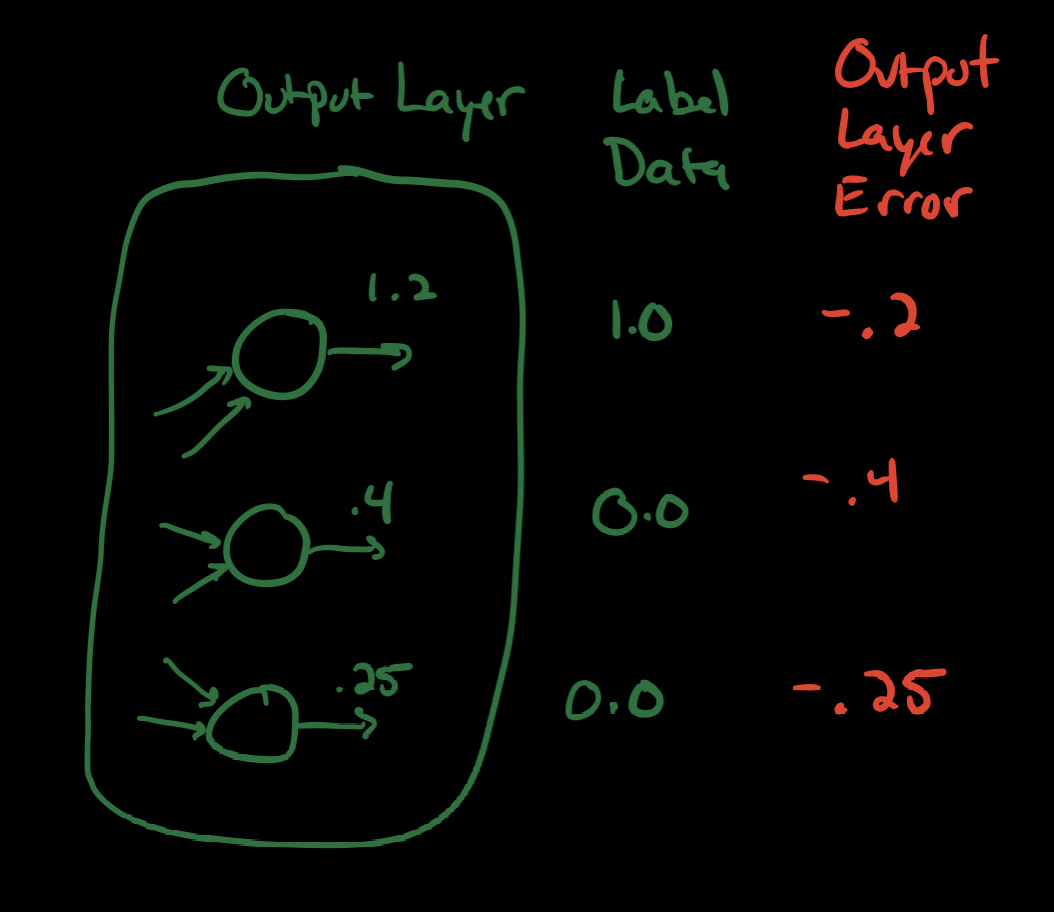 Output Layer
Label
Data
Output
Layer
Error
1.2
1.0
-.2
.4
0.0
-.4
.25
0.0
-.25